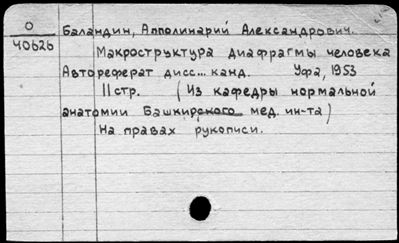 О
40626
Баландин, Апполинарий Александрович.
Макроструктура диафрагмы человека
Автореферат дисс... канд. Уфа, 1953
11 стр. (Из кафедры нормальной
анатомии Башкирского мед. ин-та)
На правах рукописи.